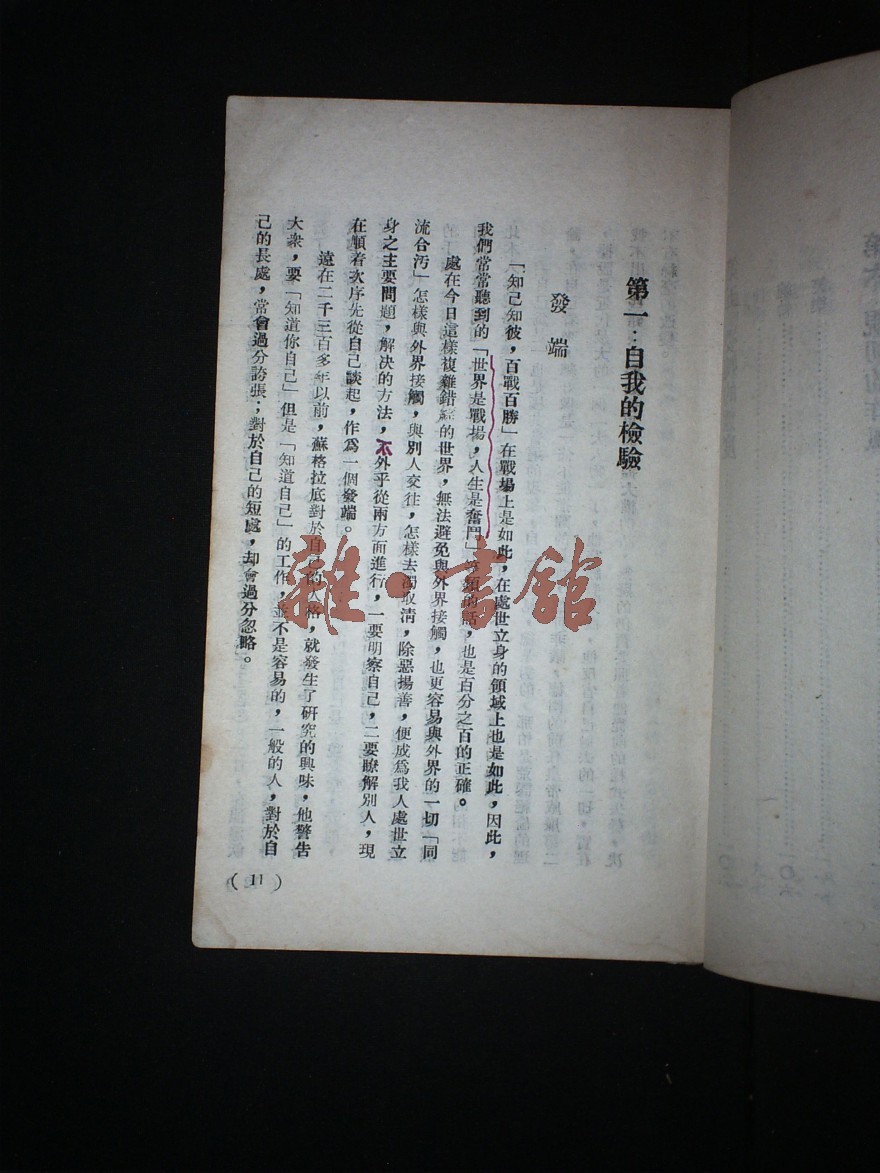 第一：自我的檢驗
發端
「知己知彼，百戰百勝」在戰場上是如此，在處世立身的領域上也是如此，因此，
我們常常聽到的「世界是戰場，人生是奮鬥」等類的話，也是百分之百的正確。
處在今日這樣複雜錯綜的世界，無法避免與外界接觸，也更容易與外界的一切「同
流合汚」怎樣與外界接觸，與別人交往，怎樣去濁取清，除惡揚善，便成爲我人處世立
身之主要問題，解决的方法，不外乎從兩方面進行，一要明察自己，二要瞭解別人，現
在順着次序先從自己談起，作爲一個發端。
遠在二千三百多年以前，蘇格拉底對於自己的人格，就發生了硏究的興味，他警告
大衆，要「知道你自己」但是「知道自己」的工作，並不是容易的，一般的人，對於自
己的長處，常會過分誇張；對於自己的短處，却會過分忽略。
(11)
雜·書館